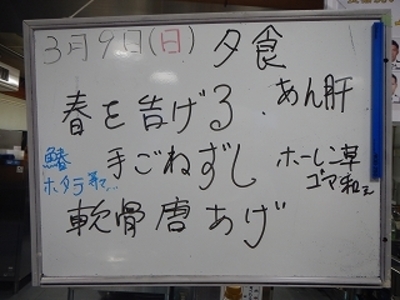 3月9日(日) 夕食
春を告げる
あん肝
鰆
ホタテ
手ごねずし
ホーレン草
ゴマ和え
軟骨唐あげ